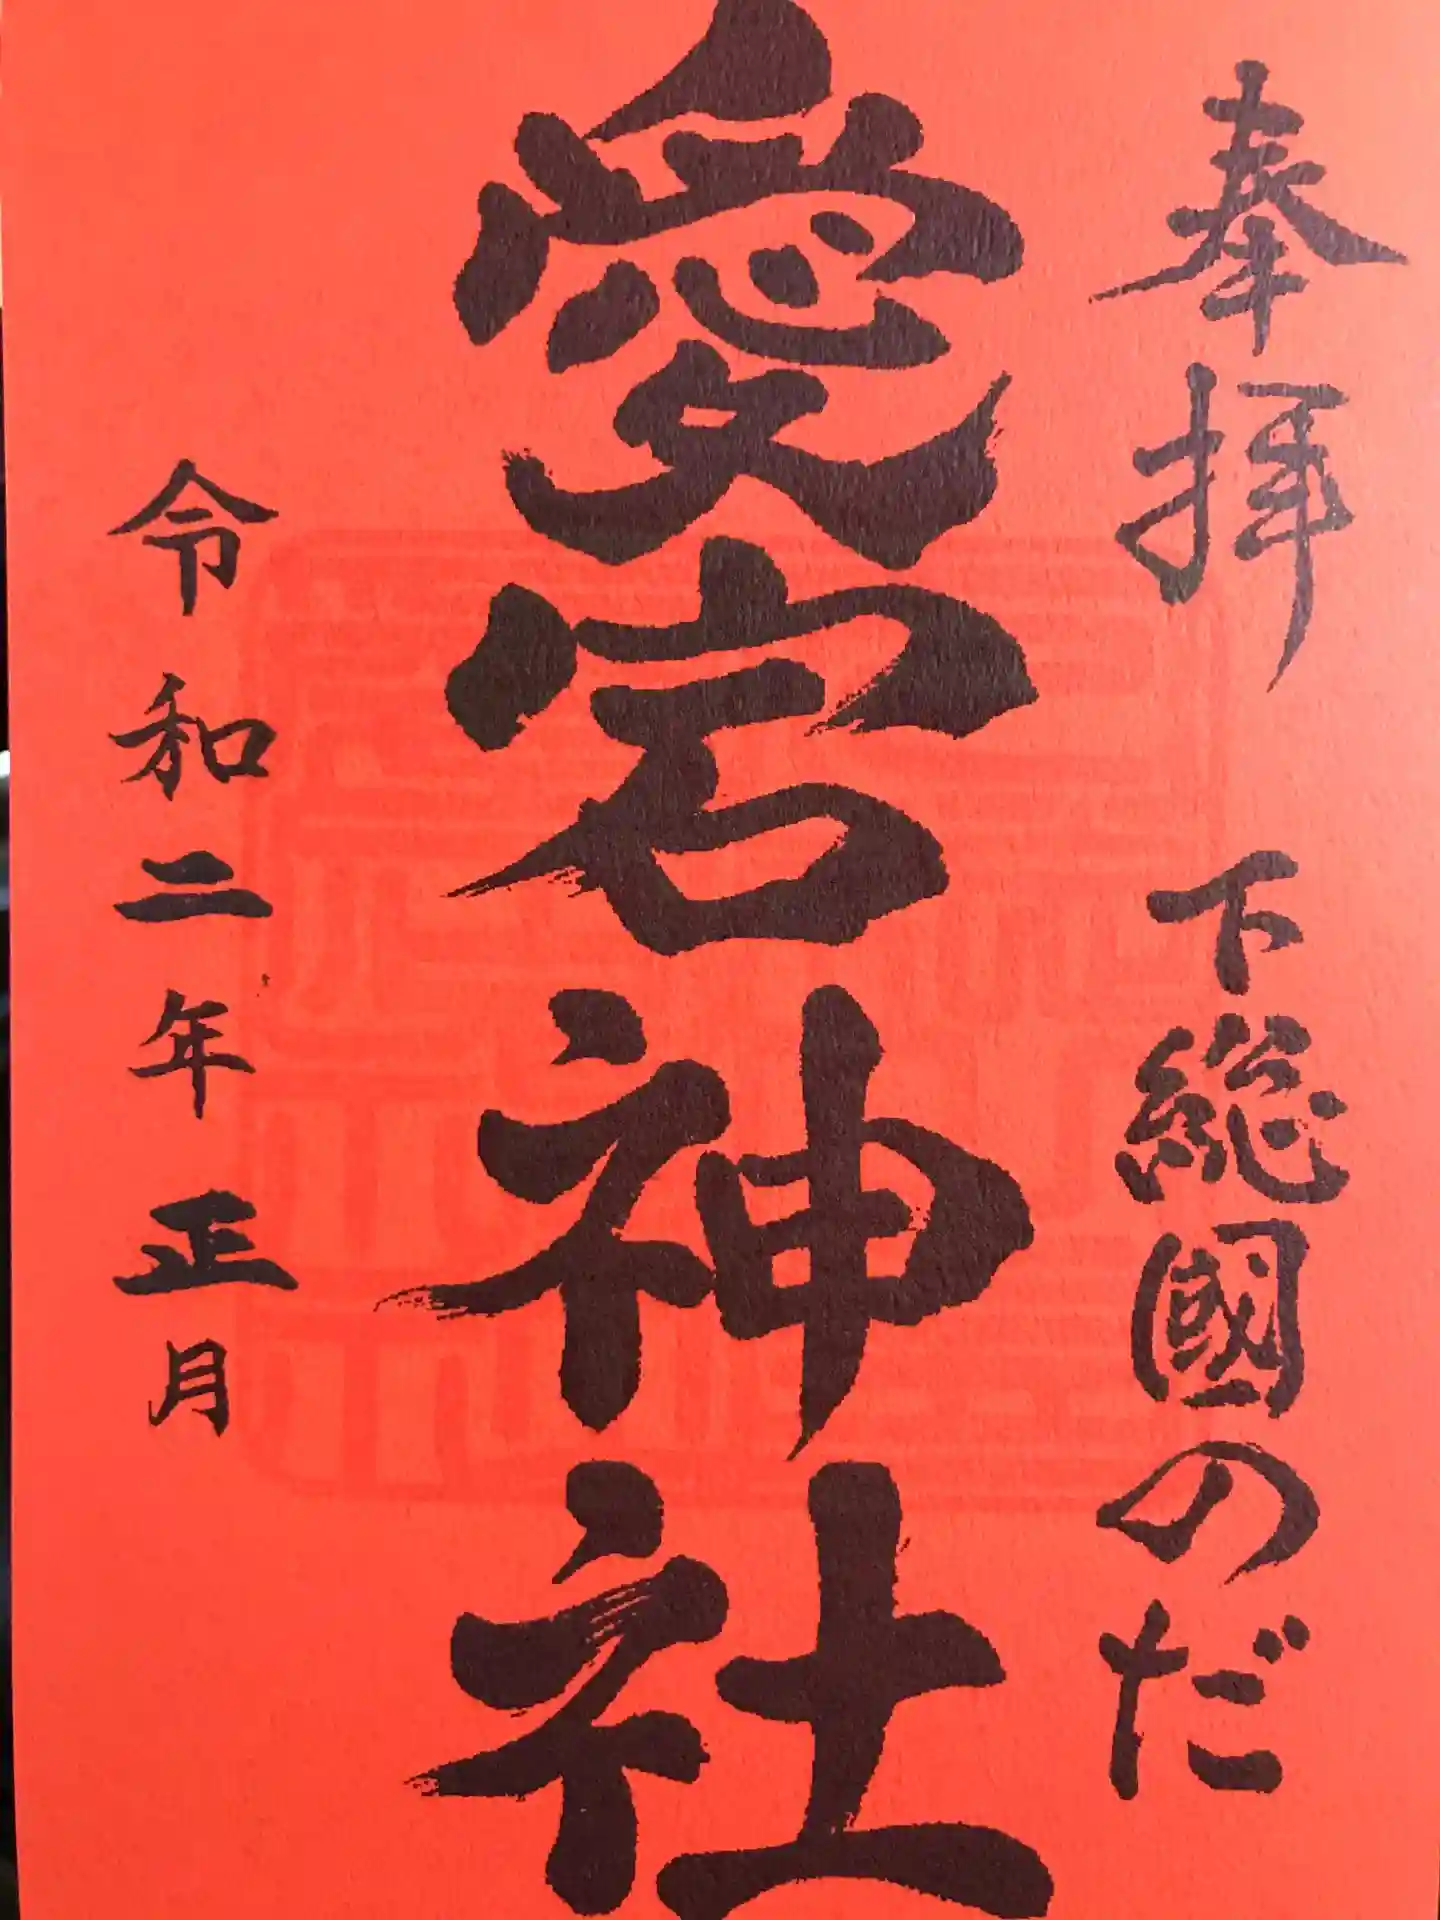 奉拝　下総國のだ
愛宕神社
令和二年正月